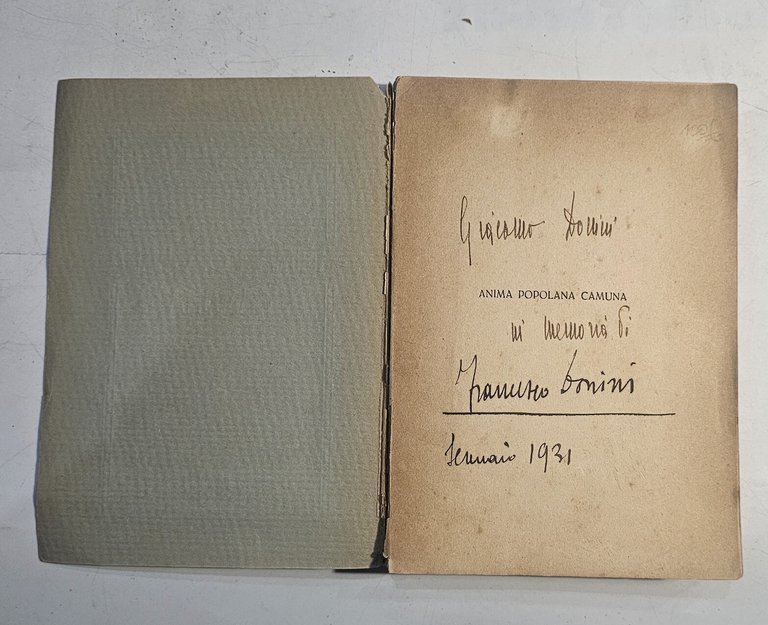 Giacomo Donini
ANIMA POPOLANA CAMUNA
in memoria di
Francesco Donini
Gennaio 1931